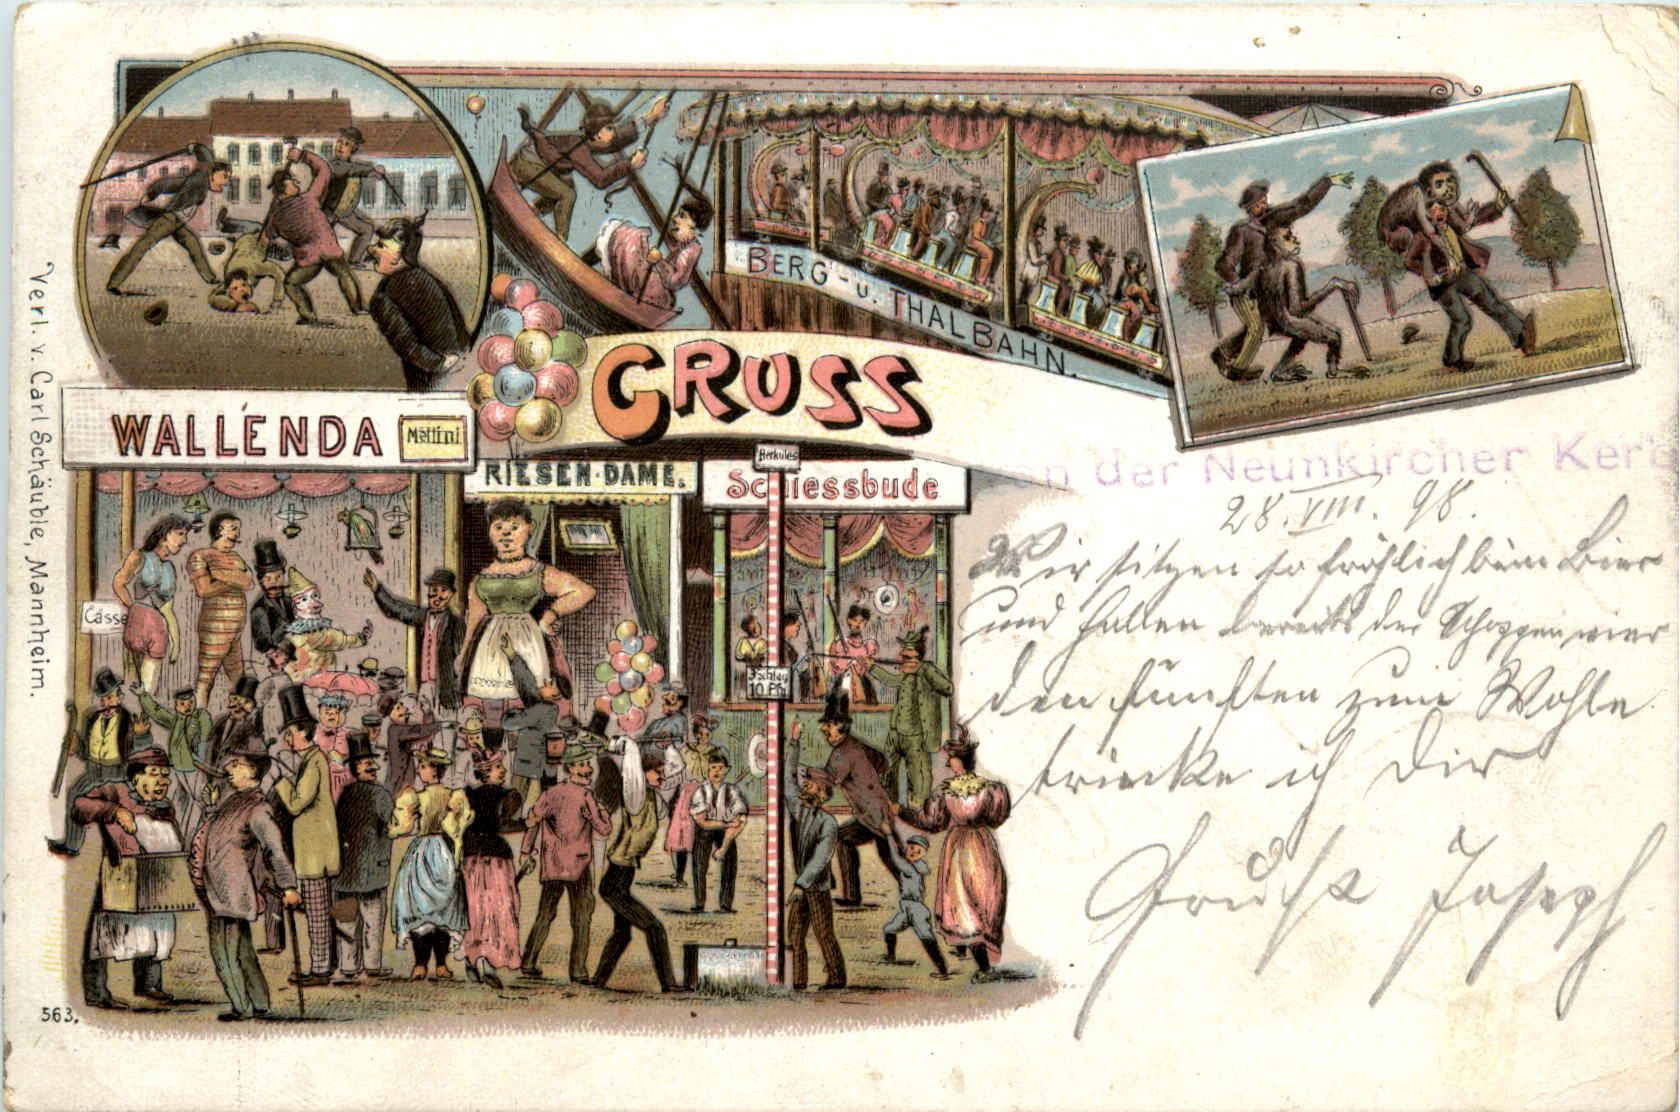 BERG- u. THALBAHN.
GRUSS
WALLENDA
Mellini
RIESEN-DAME.
Herkules
Schiessbude
Casse
3 Schlag
10 Pfg
von der Neunkircher Kerb
28. VIII. 98.
Wir sitzen so fröhlich beim Bier
und haben bereits der Schoppen vier
den fünften zum Wohle
trinke ich Dir
Gruß Joseph
Verl. v. Carl Schäuble, Mannheim.
563.